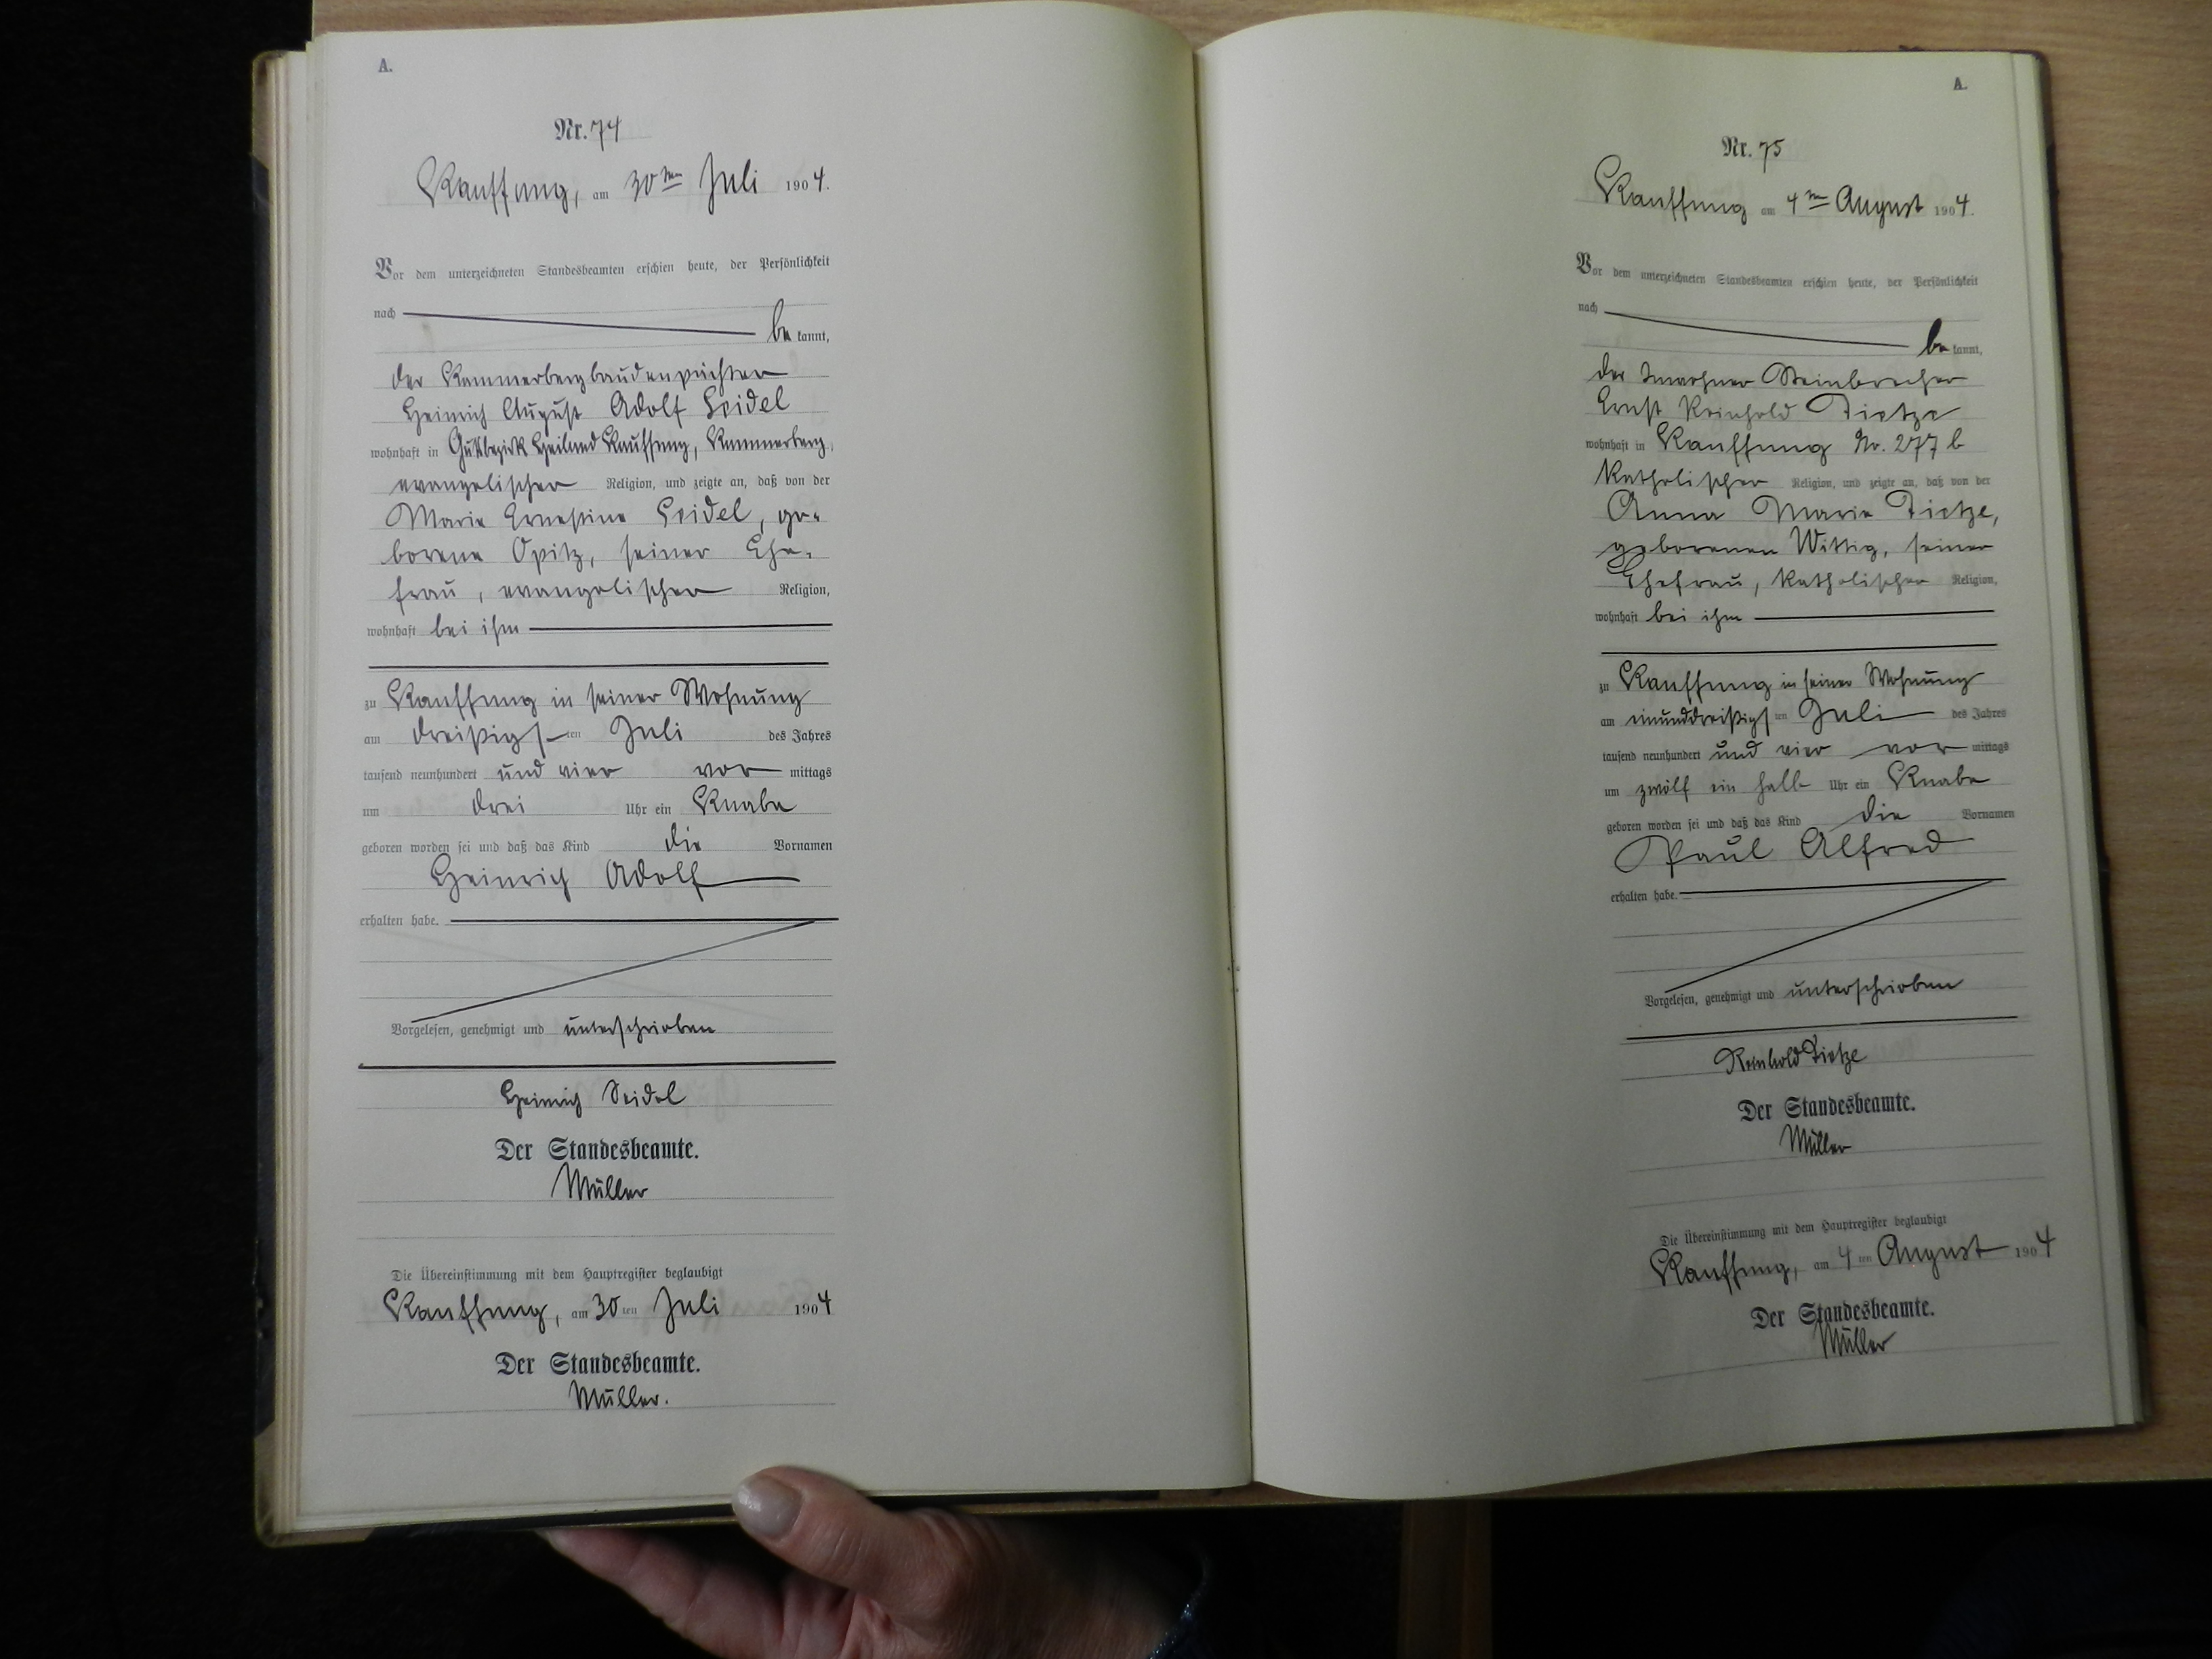 A.
Nr. 74
Kauffung, am 30ten Juli 1904.
Vor dem unterzeichneten Standesbeamten erschien heute, der Persönlichkeit
nach be kannt,
der Kammerbergbaudenpächter
Heinrich August Adolf Seidel
wohnhaft in Gutsbezirk Heiland Kauffung, Kammerberg,
evangelischer Religion, und zeigte an, daß von der
Marie Ernestine Seidel, ge-
borene Opitz, seiner Ehe-
frau, evangelischer Religion,
wohnhaft bei ihm
zu Kauffung in seiner Wohnung
am dreißigsten Juli des Jahres
tausend neunhundert und vier vor mittags
um drei Uhr ein Knabe
geboren worden sei und daß das Kind die Vornamen
Heinrich Adolf
erhalten habe.
Vorgelesen, genehmigt und unterschrieben
Heinrich Seidel
Der Standesbeamte.
Müller
Die Übereinstimmung mit dem Hauptregister beglaubigt
Kauffung, am 30ten Juli 1904
Der Standesbeamte.
Müller.
A.
Nr. 75
Kauffung am 4ten August 1904.
Vor dem unterzeichneten Standesbeamten erschien heute, der Persönlichkeit
nach be kannt,
der Inwohner Steinbrecher
Ernst Reinhold Tietze
wohnhaft in Kauffung Nr. 277 b
katholischer Religion, und zeigte an, daß von der
Anna Marie Tietze,
geborenen Wittig, seiner
Ehefrau, katholischer Religion,
wohnhaft bei ihm
zu Kauffung in seiner Wohnung
am einunddreißigsten Juli des Jahres
tausend neunhundert und vier vor mittags
um zwölf ein halb Uhr ein Knabe
geboren worden sei und daß das Kind die Vornamen
Paul Alfred
erhalten habe.
Vorgelesen, genehmigt und unterschrieben
Reinhold Tietze
Der Standesbeamte.
Müller
Die Übereinstimmung mit dem Hauptregister beglaubigt
Kauffung, am 4ten August 1904
Der Standesbeamte.
Müller